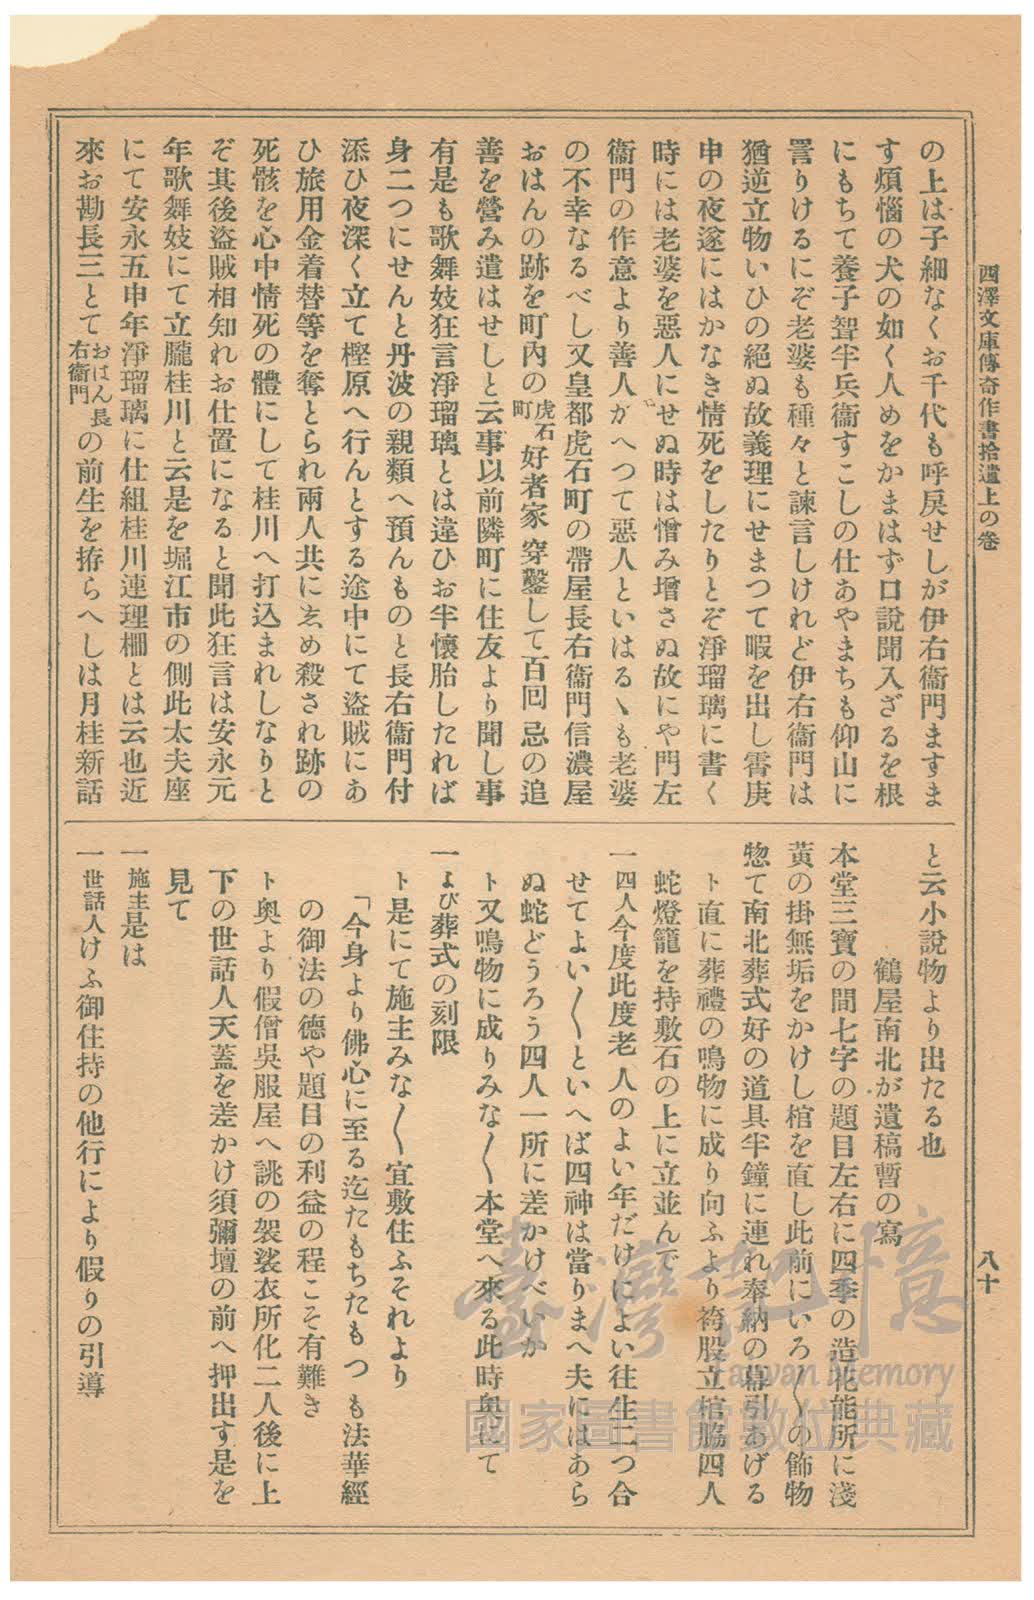 西澤文庫傳奇作書拾遺上の卷
八十
の上は子細なくお千代も呼戾せしが伊右衞門ますま
す煩惱の犬の如く人めをかまはず口說聞入ざるを根
にもちて養子聟半兵衞すこしの仕あやまちも仰山に
詈りけるにぞ老婆も種々と諫言しけれど伊右衞門は
猶逆立物いひの絕ぬ故義理にせまつて暇を出し霄庚
申の夜遂にはかなき情死をしたりとぞ淨瑠璃に書く
時には老婆を惡人にせぬ時は憎み增さぬ故にや門左
衞門の作意より善人がへつて惡人といはるゝも老婆
の不幸なるべし又皇都虎石町の帶屋長右衞門信濃屋
おはんの跡を町內の虎石町好者家穿鑿して百回忌の追
善を營み遣はせしと云事以前隣町に住友より聞し事
有是も歌舞妓狂言淨瑠璃とは違ひお半懷胎したれば
身二つにせんと丹波の親類へ預んものと長右衞門付
添ひ夜深く立て樫原へ行んとする途中にて盜賊にあ
ひ旅用金着替等を奪とられ兩人共にゑめ殺され跡の
死骸を心中情死の體にして桂川へ打込まれしなりと
ぞ其後盜賊相知れお仕置になると聞此狂言は安永元
年歌舞妓にて立朧桂川と云是を堀江市の側此太夫座
にて安永五申年淨瑠璃に仕組桂川連理柵とは云也近
來お勘長三とておはん長右衞門の前生を拵らへしは月桂新話
と云小說物より出たる也
鶴屋南北が遺稿暫の寫
本堂三寶の間七字の題目左右に四季の造花能所に淺
黃の掛無垢をかけし棺を直し此前にいろ〱の飾物
惣て南北葬式好の道具半鐘に連れ奉納の幕引あげる
ト直に葬禮の鳴物に成り向ふより袴股立棺脇四人
蛇燈籠を持敷石の上に立並んで
一四人今度此度老人のよい年だけによい往生二つ合
せてよい〱といへば四神は當りまへ夫にはあら
ぬ蛇どうろう四人一所に差かけべいか
ト又鳴物に成りみな〱本堂へ來る此時奧にて
一よび葬式の刻限
ト是にて施主みな〱宜敷住ふそれより
「今身より佛心に至る迄たもちたもつも法華經
の御法の德や題目の利益の程こそ有難き
ト奧より假僧吳服屋へ誂の袈裟衣所化二人後に上
下の世話人天蓋を差かけ須彌壇の前へ押出す是を
見て
一施主是は
一世話人けふ御住持の他行により假りの引導
臺灣記憶
Taiwan Memory
國家圖書館數位典藏